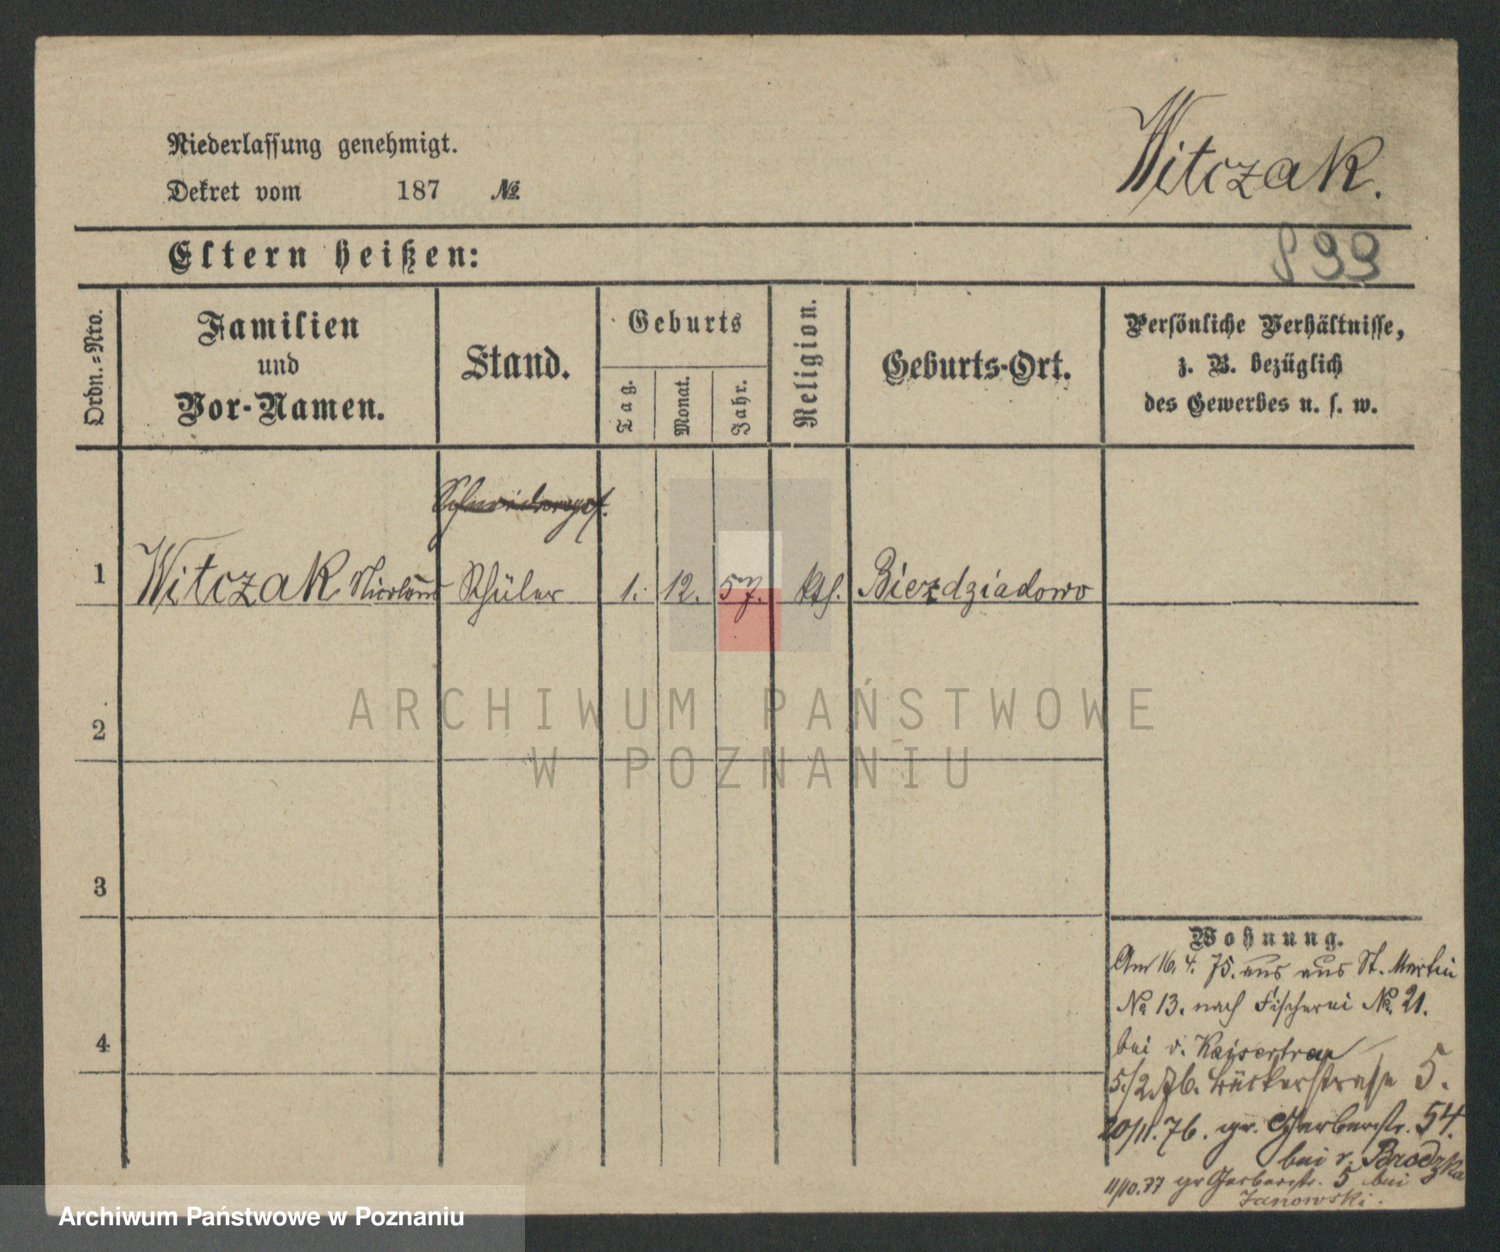 Niederlassung genehmigt.
Dekret vom 187 №
Witczak.
Eltern heißen:
899
Ordn.-Nro.
Familien
und
Vor-Namen.
Stand.
Geburts
Tag.
Monat.
Jahr.
Religion.
Geburts-Ort.
Persönliche Verhältnisse,
z. B. bezüglich
des Gewerbes u. s. w.
1 Witczak Nicolaus Schüler 1. 12. 57. kth. Bierzdziadowo
2
3
4
Wohnung.
Am 16. 4. 75. aus St. Martin
№ 13. nach Fischerei № 21.
bei v. Kaisertrap
5/2.76. Bäckerstraße 5.
20/11.76. gr. Gerberstr. 54.
bei v. Brodzka
11/10.77 gr Gerberstr. 5 bei
Janowski.
ARCHIWUM PAŃSTWOWE
W POZNANIU
Archiwum Państwowe w Poznaniu